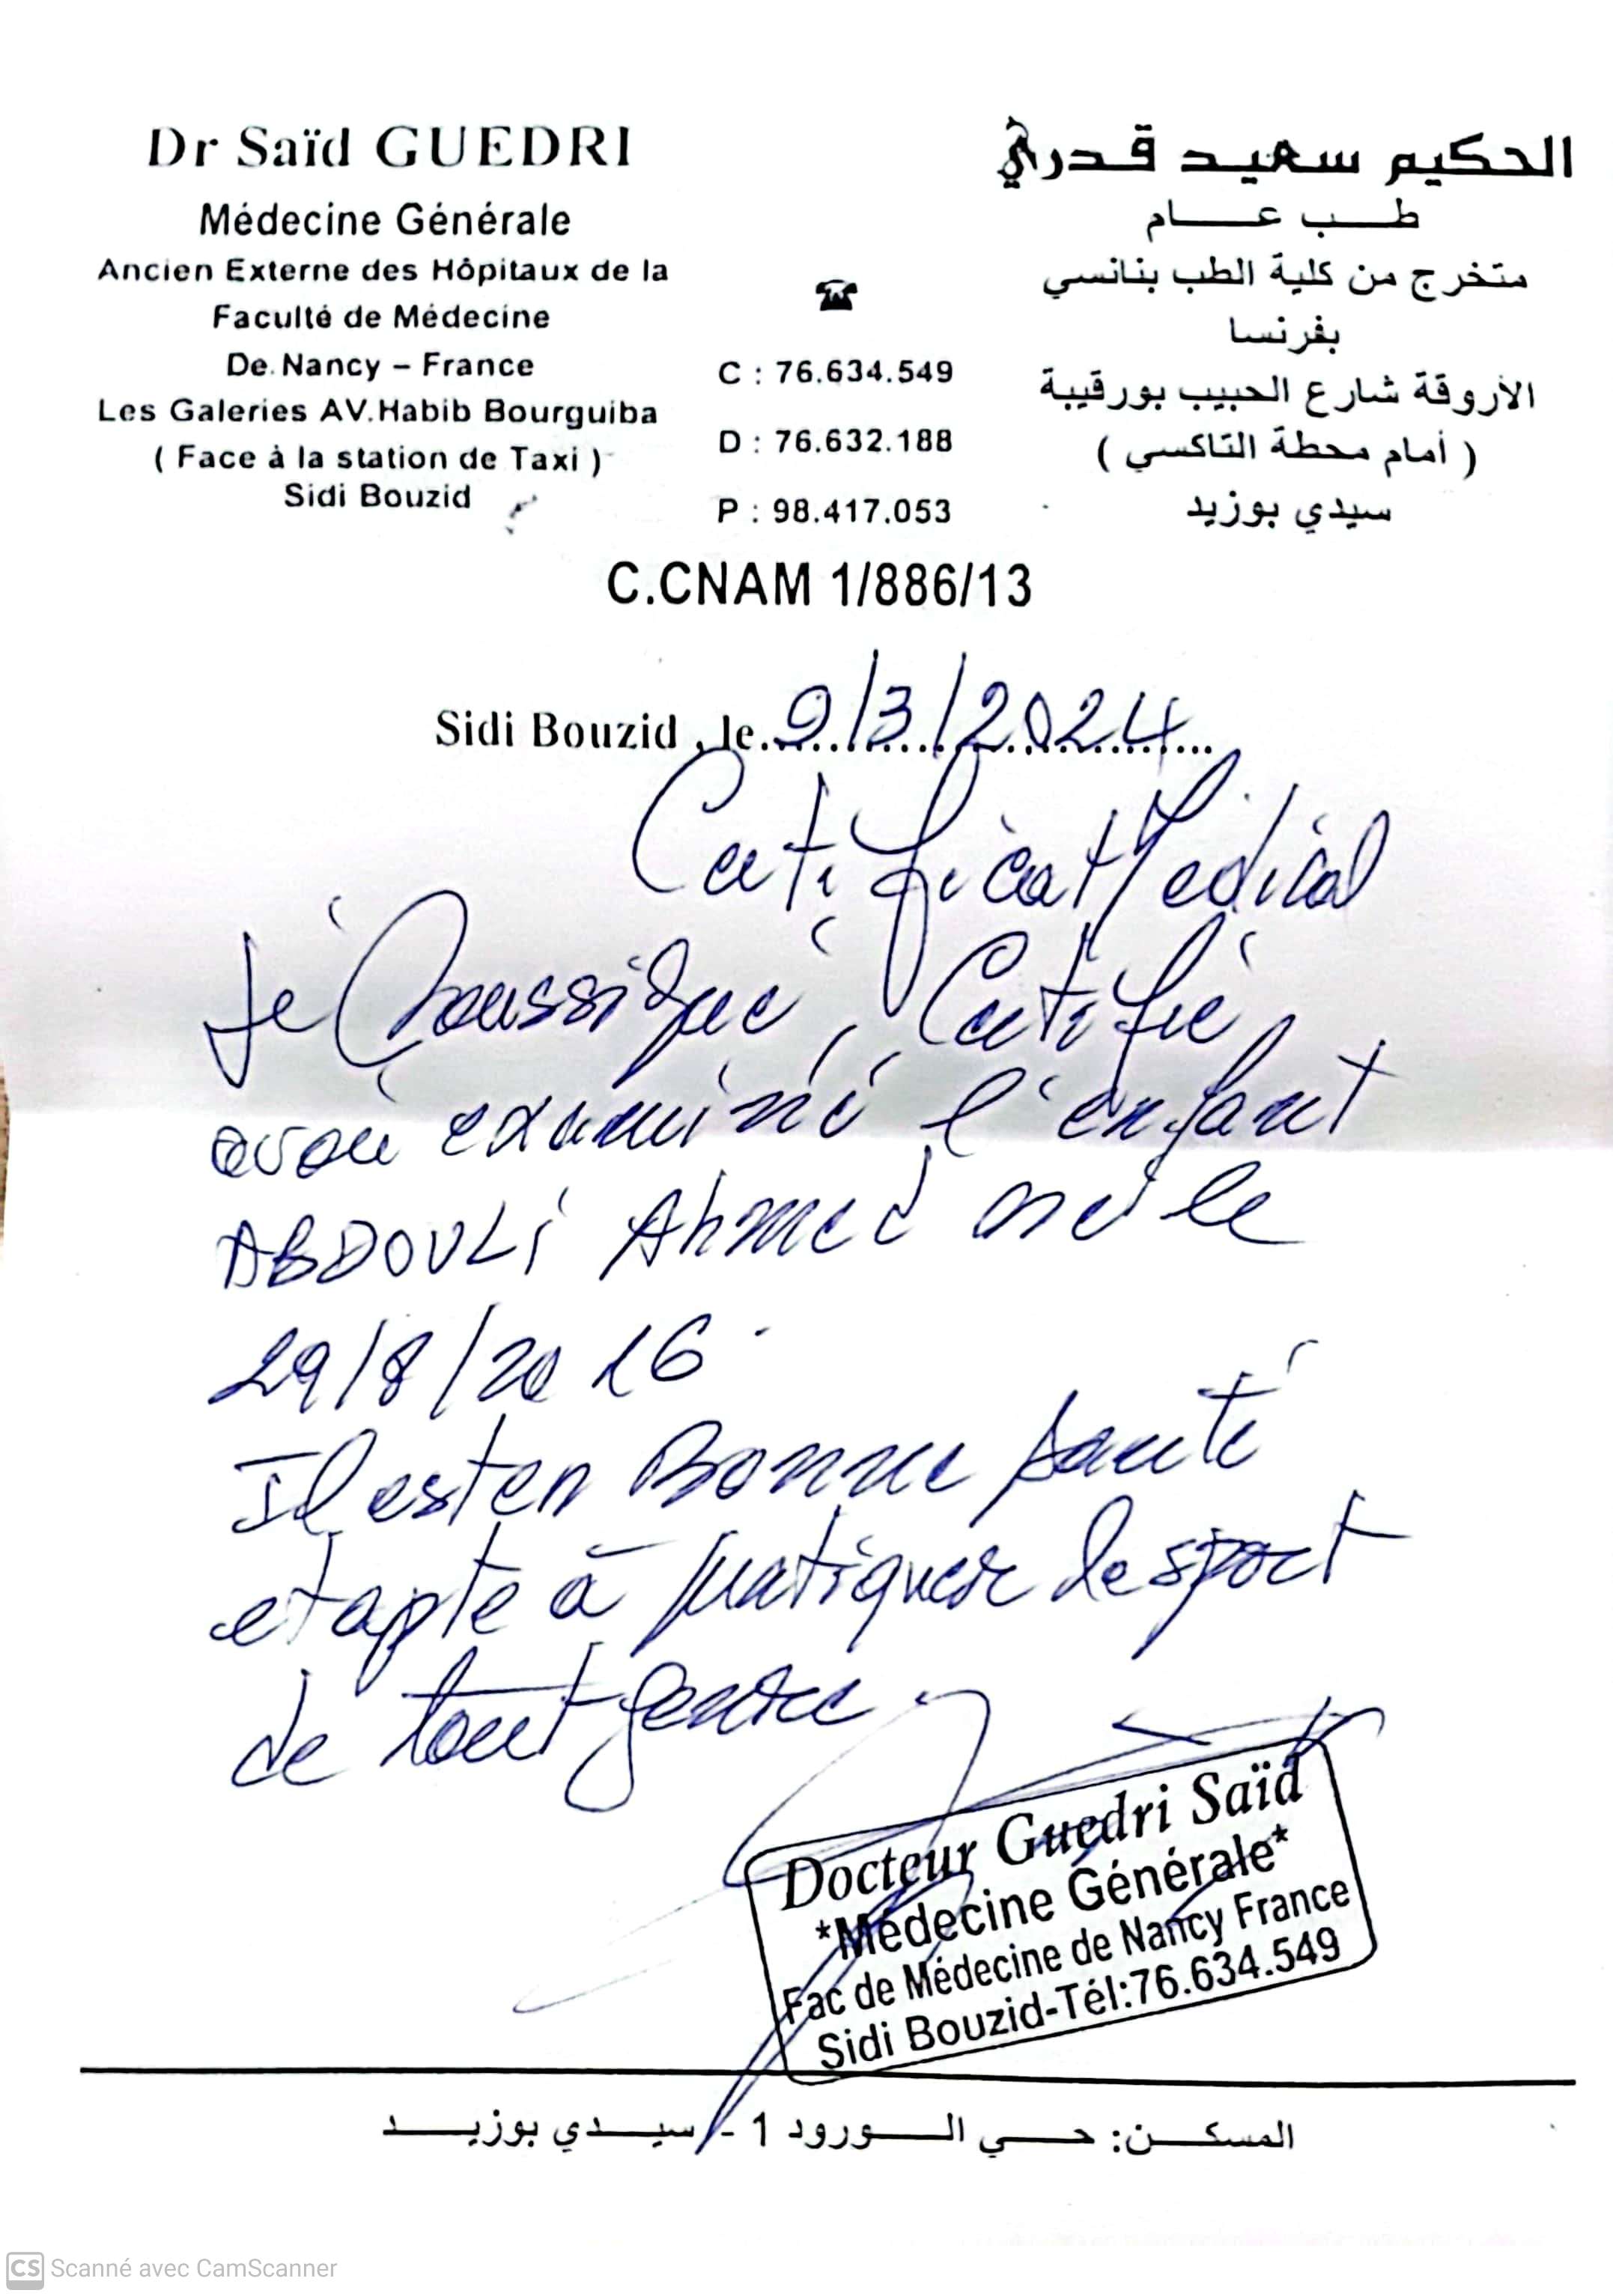 Dr Saïd GUEDRI
Médecine Générale
Ancien Externe des Hôpitaux de la
Faculté de Médecine
De Nancy – France
Les Galeries AV.Habib Bourguiba
( Face à la station de Taxi )
Sidi Bouzid
☎
C : 76.634.549
D : 76.632.188
P : 98.417.053
الحكيم سعيد قدري
طب عام
متخرج من كلية الطب بنانسي
بفرنسا
الأروقة شارع الحبيب بورقيبة
( أمام محطة التاكسي )
سيدي بوزيد
C.CNAM 1/886/13
Sidi Bouzid , le 9/3/2024
Certificat Medical
Je Soussigné, Certifie
avoir examiné l'enfant
ABDOULI Ahmed né le
29/8/2016
Il est en Bonne santé
et apte à pratiquer le sport
de tout genre
Docteur Guedri Saïd
*Médecine Générale*
Fac de Médecine de Nancy France
Sidi Bouzid-Tél:76.634.549
المسكن: حي الورود 1 - سيدي بوزيد
CS Scanné avec CamScanner